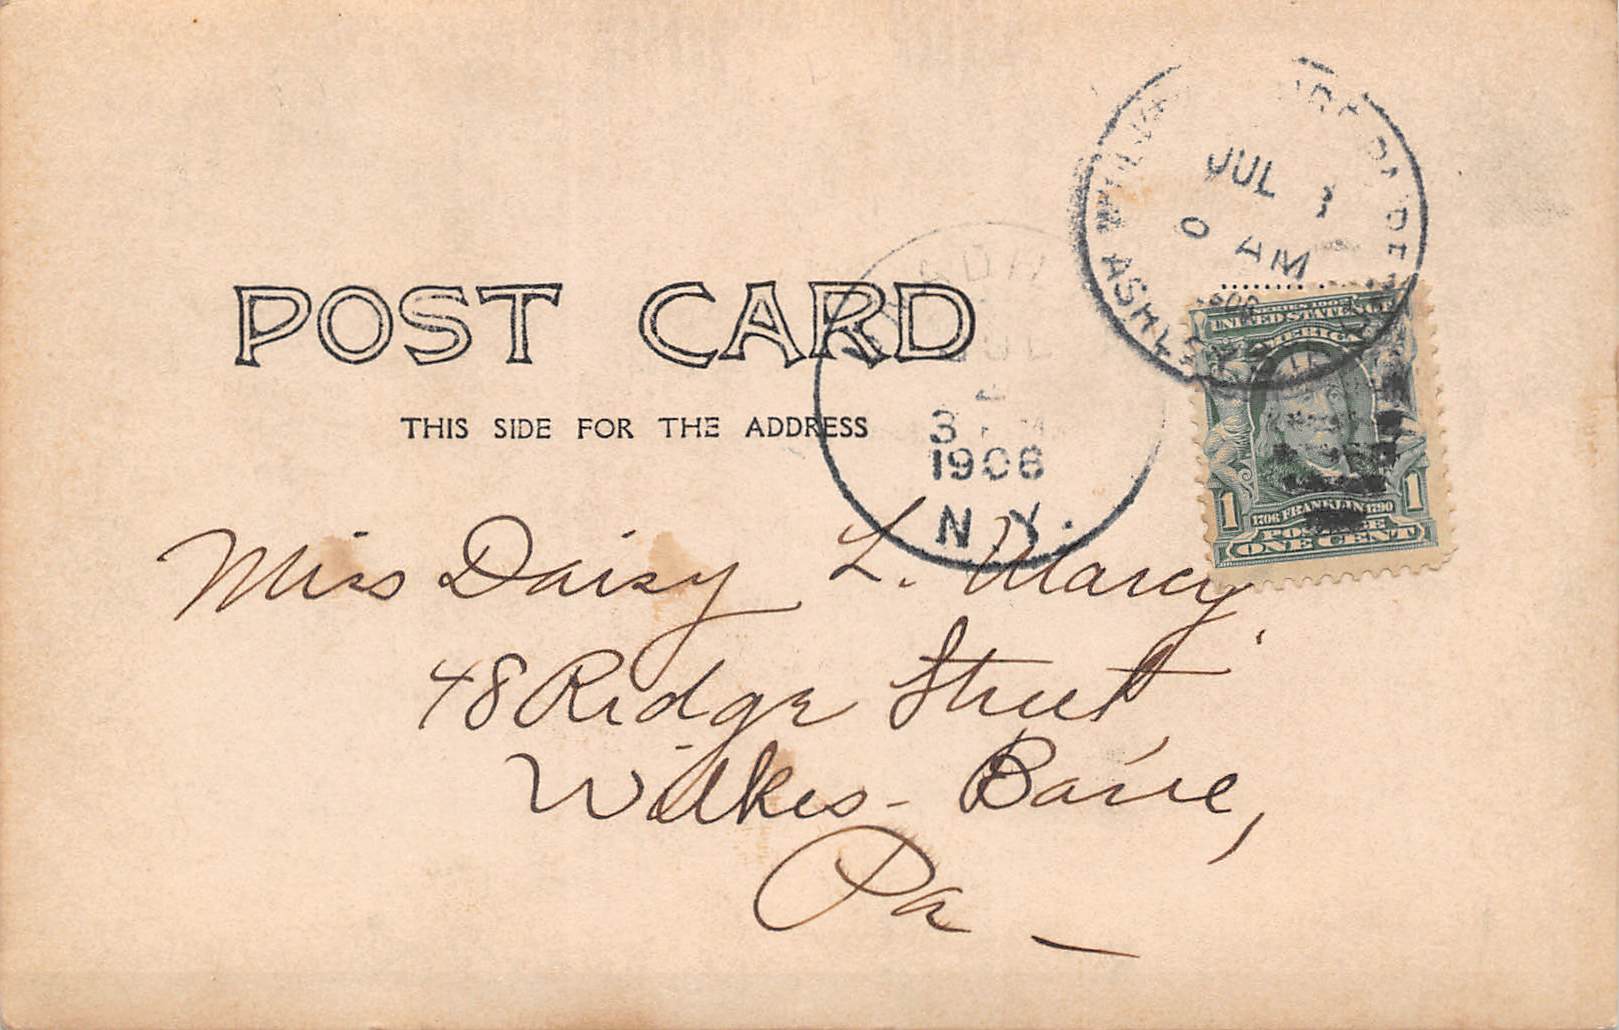 POST CARD
THIS SIDE FOR THE ADDRESS
JUL
AM
ASHLEY
JUL
3
1906
N.Y.
SERIES 1902
UNITED STATES OF
AMERICA
1706 FRANKLIN 1790
1 POSTAGE 1
ONE CENT
Miss Daisy L. Marcy
48 Ridge Street
Wilkes-Barre,
Pa